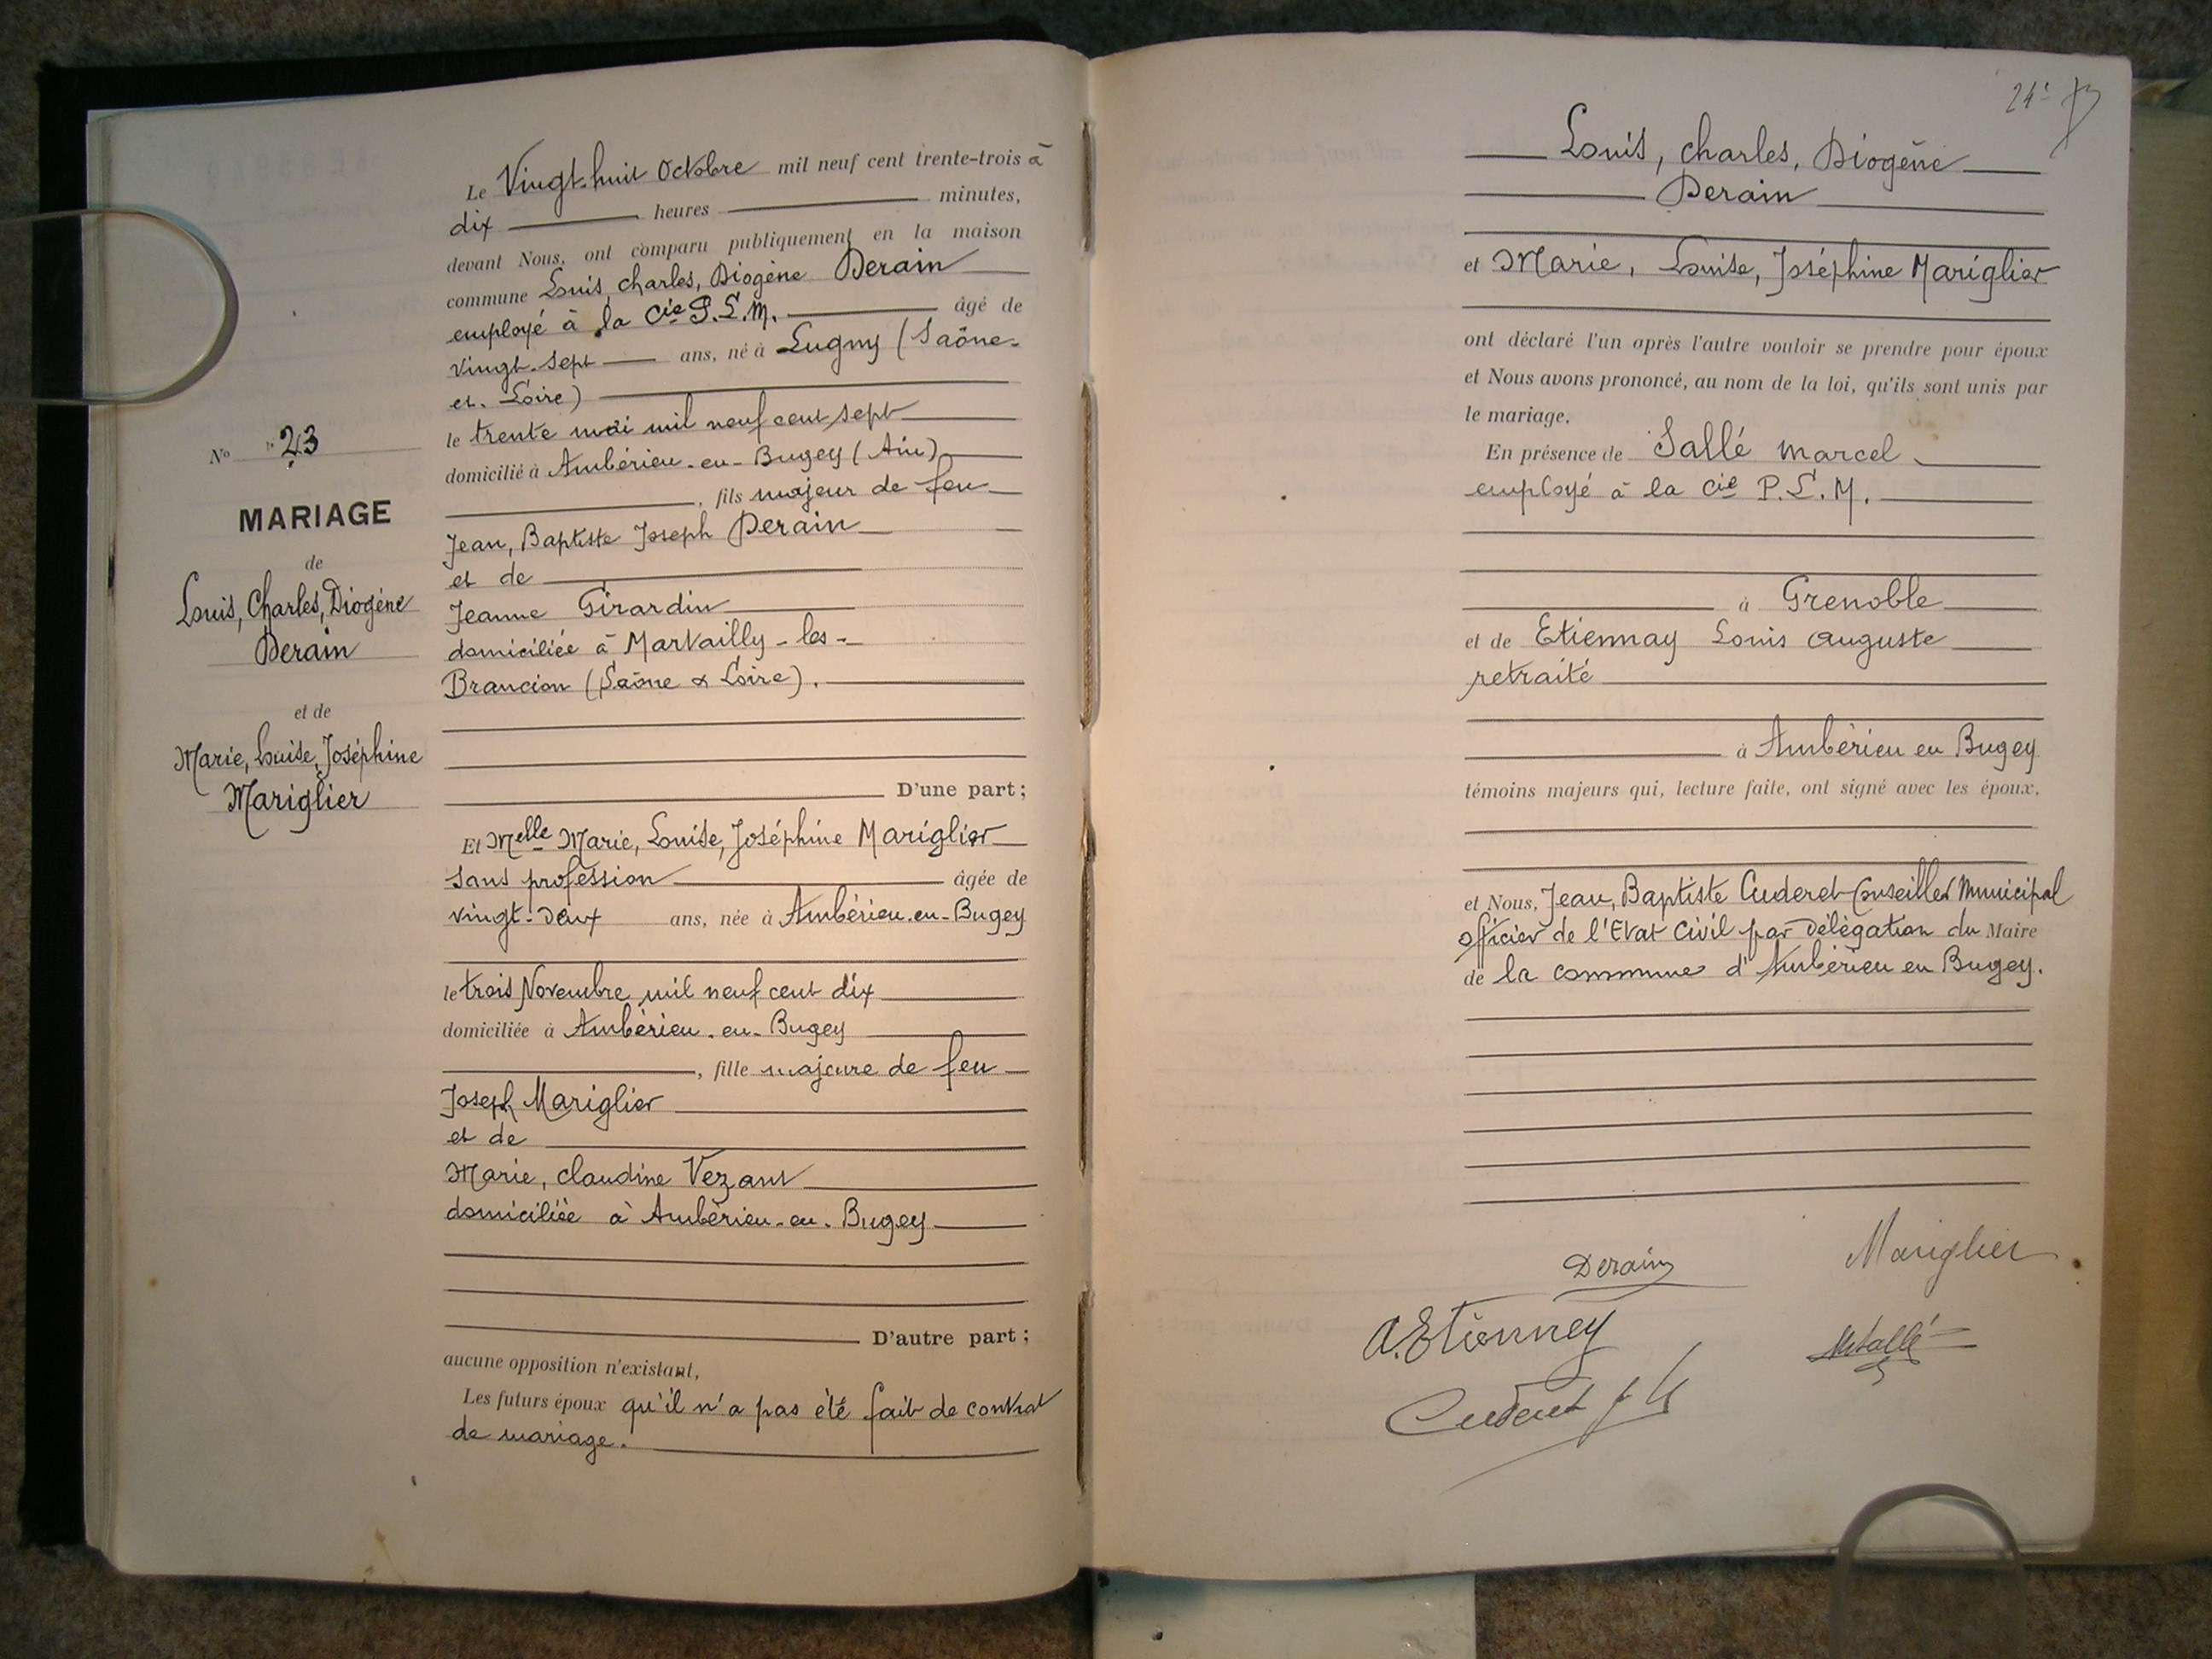 N° 23
MARIAGE
de
Louis, Charles, Diogène
Derain
et de
Marie, Louise, Joséphine
Mariglier
Le Vingt-huit Octobre mil neuf cent trente-trois à
dix heures minutes,
devant Nous, ont comparu publiquement en la maison
commune Louis, charles, Diogène Derain
employé à la Cie P.L.M. âgé de
vingt-sept ans, né à Lugny (Saône-
et-Loire)
le trente mai mil neuf cent sept
domicilié à Ambérieu-en-Bugey (Ain)
, fils majeur de feu
Jean, Baptiste Joseph Derain
et de
Jeanne Girardin
domiciliée à Martailly-les-
Brancion (Saône & Loire).
D'une part;
Et Melle Marie, Louise, Joséphine Mariglier
sans profession âgée de
vingt-deux ans, née à Ambérieu-en-Bugey
le trois Novembre mil neuf cent dix
domiciliée à Ambérieu-en-Bugey
, fille majeure de feu
Joseph Mariglier
et de
Marie, claudine Vezant
domiciliée à Ambérieu-en-Bugey
D'autre part;
aucune opposition n'existant,
Les futurs époux qu'il n'a pas été fait de contrat
de mariage.
Louis, charles, Diogène
Derain
et Marie, Louise, Joséphine Mariglier
ont déclaré l'un après l'autre vouloir se prendre pour époux
et Nous avons prononcé, au nom de la loi, qu'ils sont unis par
le mariage.
En présence de Sallé marcel
employé à la Cie P.L.M.
à Grenoble
et de Etiennay Louis auguste
retraité
à Ambérieu en Bugey
témoins majeurs qui, lecture faite, ont signé avec les époux.
et Nous, Jean, Baptiste Cuderet Conseiller Municipal
officier de l'Etat Civil par délégation du Maire
de la commune d'Ambérieu en Bugey.
Derain
Mariglier
A. Etienney
MSallé
Cuderet